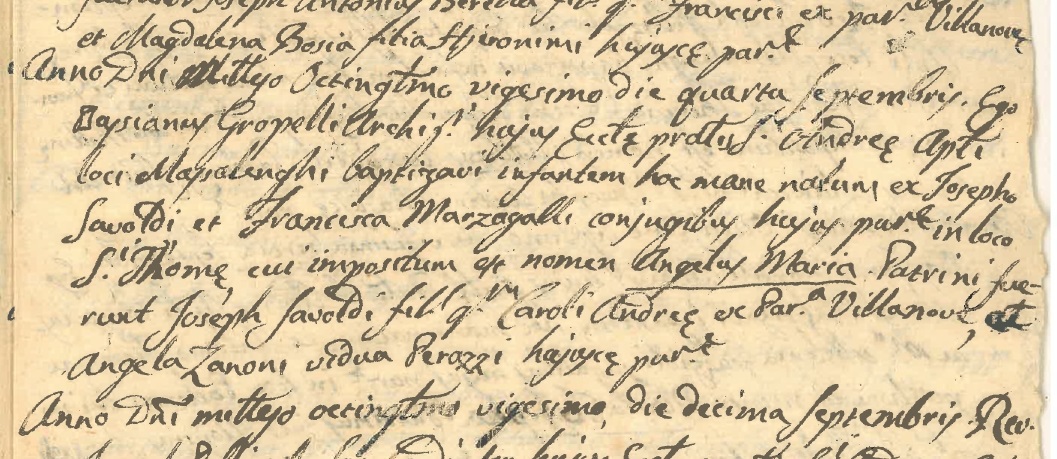 Joseph Antonius fil. q. Francisci ex par. Villanovę
et Magdalena Bosia filia Hjronimi hujuscę par.e
Anno Dni Millesjo Octingtmo vigesimo die quarta septembris. Ego
Bassianus Gropelli Archip.r hujus Ecclę prałis S. Andreę Apłi
loci Massalenghi baptizavi infantem hoc mane natum ex Josepho
Savoldi et Francisca Marzagalli conjugibus hujus par.e in loco
S.ti Thomę cui impositum est nomen Angelus Maria. Patrini fue-
runt Joseph Savoldi fil.s q.m Caroli Andreę ex Par.a Villanovę, et
Angela Zanoni vidua Perazzi hujuscę par.e
Anno Dñi millesjo octingtmo vigesimo die decima septembris. Rev.